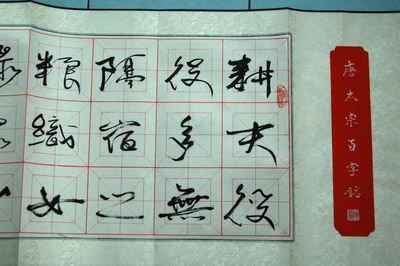 唐太宗百字銘
耕夫役
役多無
隔宿之
粮織女